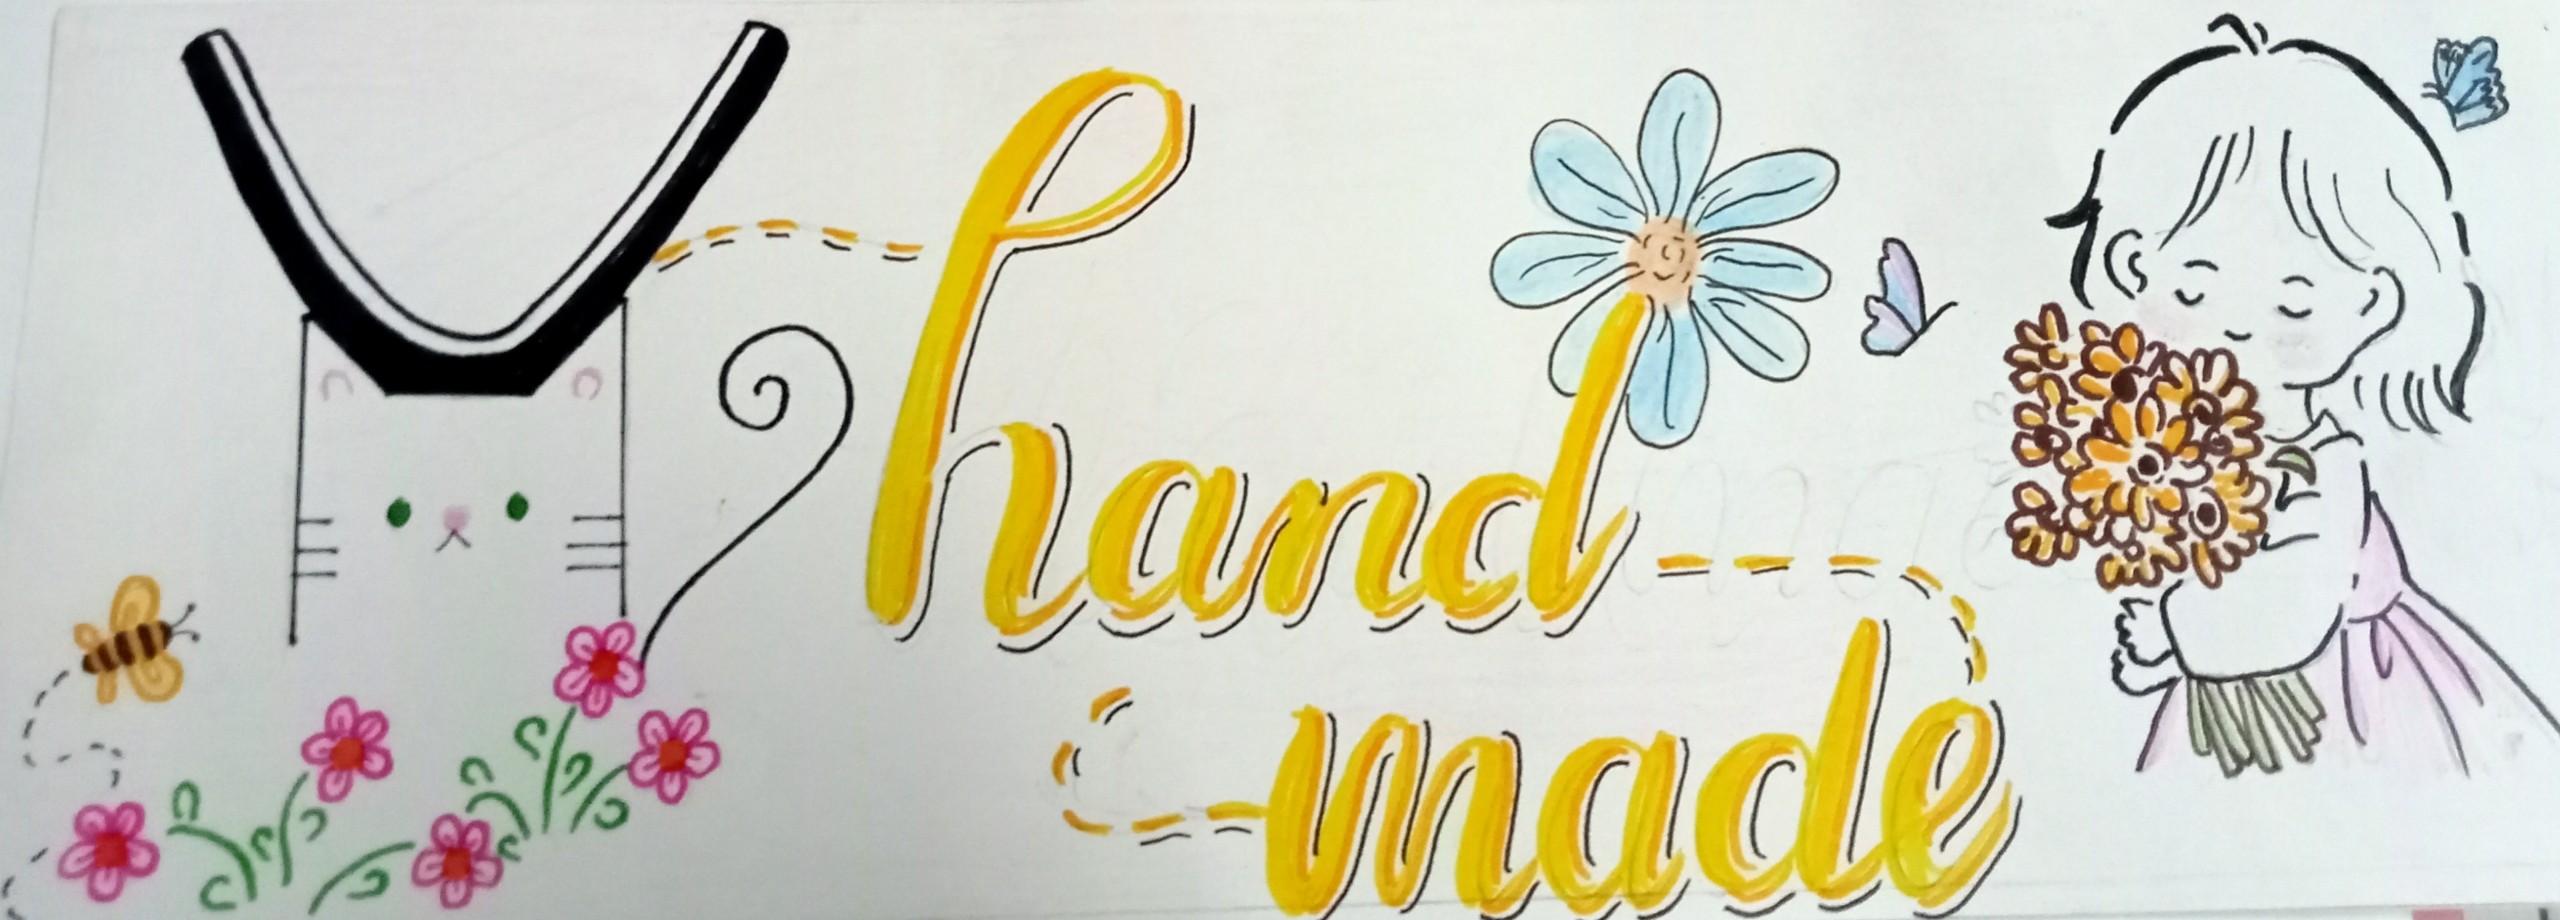 hand
made